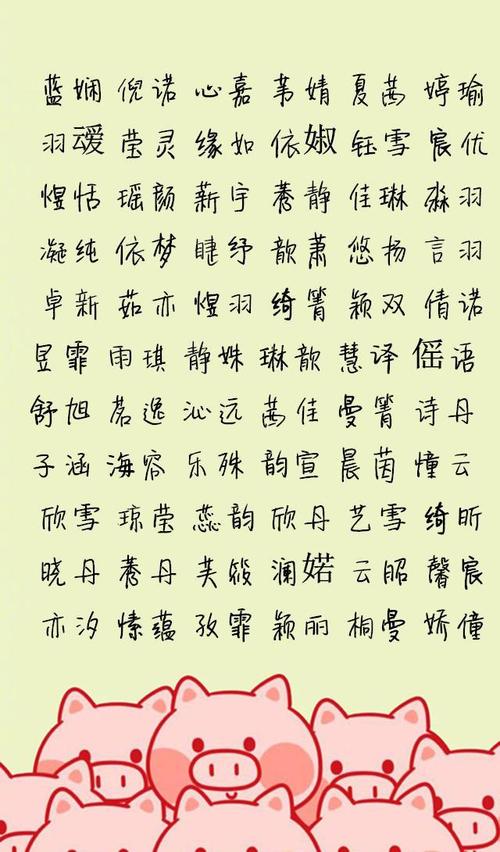 蓝娴 倪诺 心嘉 苇婧 夏茜 婷瑜
羽叆 莹灵 缘如 依婌 钰雪 宸优
煜恬 瑶颜 薪宇 骞静 佳琳 淼羽
凝纯 依梦 睫纾 歆萧 悠扬 言羽
卓新 茹亦 煜羽 绮箐 颖双 倩诺
昱霏 雨琪 静姝 琳歆 慧译 傜语
舒旭 茗逸 沁远 茜佳 曼箐 诗丹
子涵 海容 乐殊 韵宣 晨茵 憧云
欣雪 琼莹 蕊韵 欣丹 艺雪 绮昕
晓丹 骞丹 芙筱 澜婼 云昭 馨宸
亦汐 愫蕴 孜霏 颖丽 桐曼 娇僮